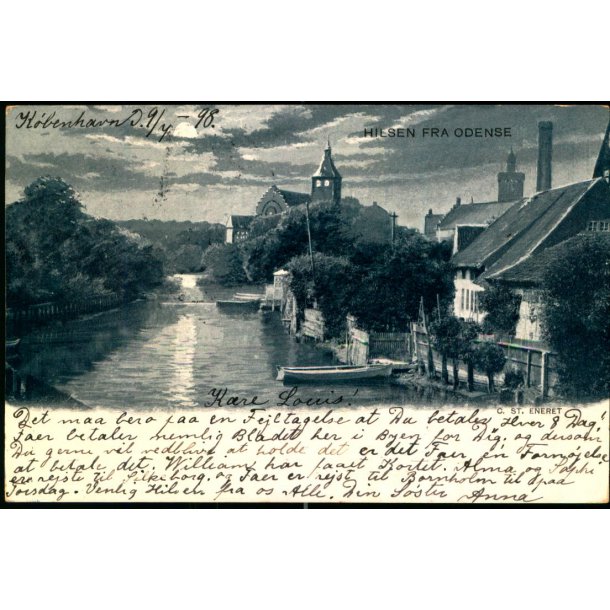 København D. 9/7 - 98.
HILSEN FRA ODENSE
Kære Louis!
C. ST. ENERET
Det maa bero paa en Fejltagelse at Du betaler Hver 8 Dag!
Faer betaler nemlig Bladet her i Byen for Dig, og dersom
Du gerne vil vedblive at holde det er det Faer en Fornøjelse
at betale det. William har faaet Kortet. Alma og Sophi
ere rejste til Silkeborg, og Faer er rejst til Bornholm til paa
Torsdag. Venlig Hilsen fra os Alle. Din Søster Anna